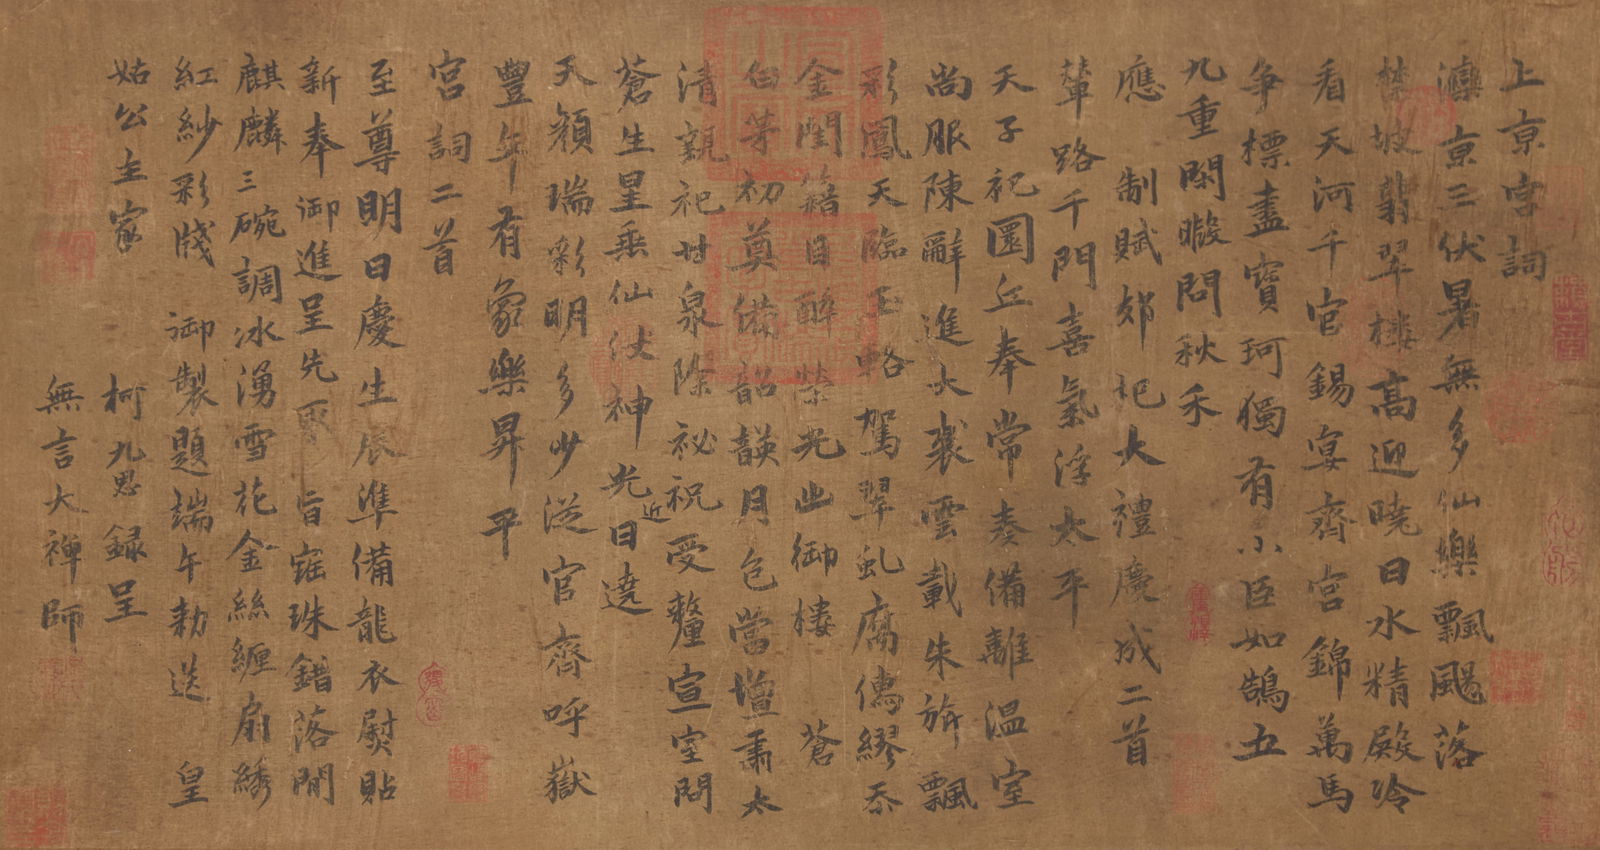 上京宮詞
灤京三伏暑無多仙樂飄颺落
棼坡翡翠樓高迎曉日水精殿冷
看天河千官錫宴齊宮錦萬馬
爭標盡寶珂獨有小臣如鵠立
九重閑暇問秋禾
應制賦郊祀大禮慶成二首
輦路千門喜氣浮太平
天子祀圜丘奉常奏備離溫室
尚服陳辭進大裘雲載朱旂飄
彩鳳天臨玉輅駕翠虬腐儒繆忝
金閨籍目醉榮光出御樓 蒼
白茅初奠備韶韺月色當壇肅太
清親祀甘泉除祕祝受釐宣室問
蒼生星垂仙仗神光近日遶
天顏瑞彩明多少從官齊呼嶽
豐年有象樂昇平
宮詞二首
至尊明日慶生辰準備龍衣熨貼
新奉御進呈先取旨 珠錯落間
麒麟三碗調冰湧雪花金絲纏扇綉
紅紗彩牋御製題端午勅送皇
姑公主家
柯九思錄呈
無言大禪師